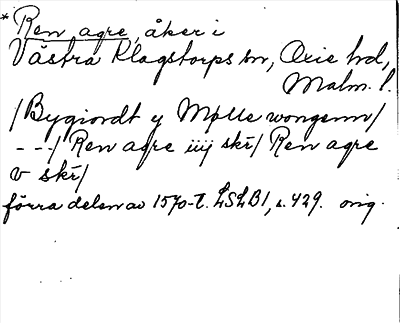 * Ren agre, åker i
Västra Klagstorps sn, Oxie hd,
Malm. l.
/Bygiordt y Mølle wongenn/
---/ Ren agre iiij skr/ Ren agre
v skr/
förra delen av 1570-t. LSLB1, s. 429. orig.